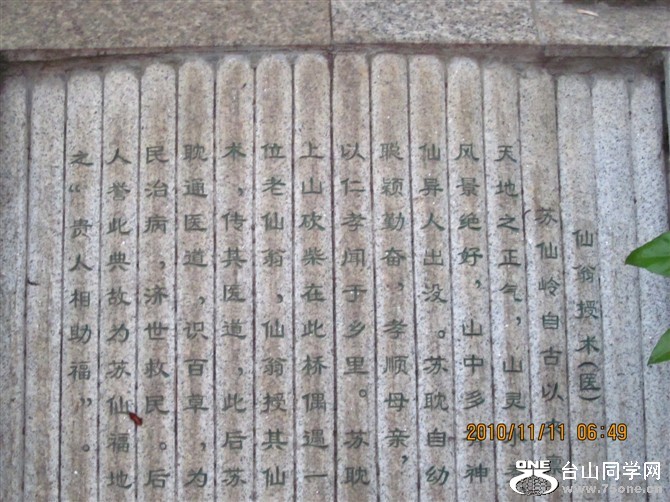 仙翁授术(医)
苏仙岭自古以
天地之正气，山灵
风景绝好，山中多神
仙异人出没。苏耽自幼
聪颖勤奋，孝顺母亲，
以仁孝闻于乡里。苏耽
上山砍柴在此桥偶遇一
位老仙翁，仙翁授其仙
术，传其医道，此后苏
耽通医道，识百草，为
民治病，济世救民。后
人誉此典故为苏仙福地
之“贵人相助福”。
2010/11/11 06:49
ONE 台山同学网
www.75one.cn